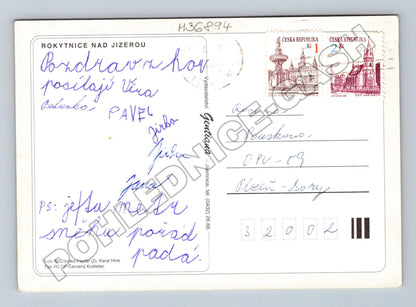 H36894
ROKYTNICE NAD JIZEROU
Pozdrav z hor
posílají Věra
PAVEL
Jirka
Jana
PS: ještu metr
sněhu pořád
padá.
Foto: © Čestmír (2), Karel Hník
Tisk VČT Červený Kostelec
Vydavatelství Gentiana Jilemnice, tel. (0432) 26 66
ČESKÁ REPUBLIKA
Kč 1
ČESKÁ REPUBLIKA
2 Kč
OPV-89
Plzeň-Bory
3 2 0 0 2
POHLEDNICE-CASH